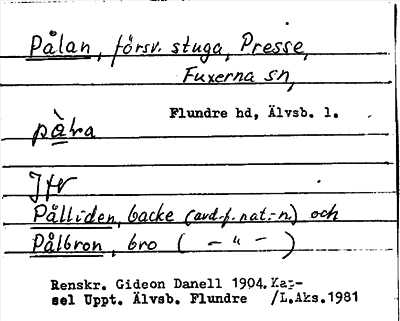 Pålan, försv. stuga, Presse,
Fuxerna sn,
Flundre hd, Älvsb. l.
Jfr
Pålliden, backe (avd.f. nat.-n.) och
Pålbron, bro ( — " — )
Renskr. Gideon Danell 1904. Kap-
sel Uppt. Älvsb. Flundre /L.Aks.1981